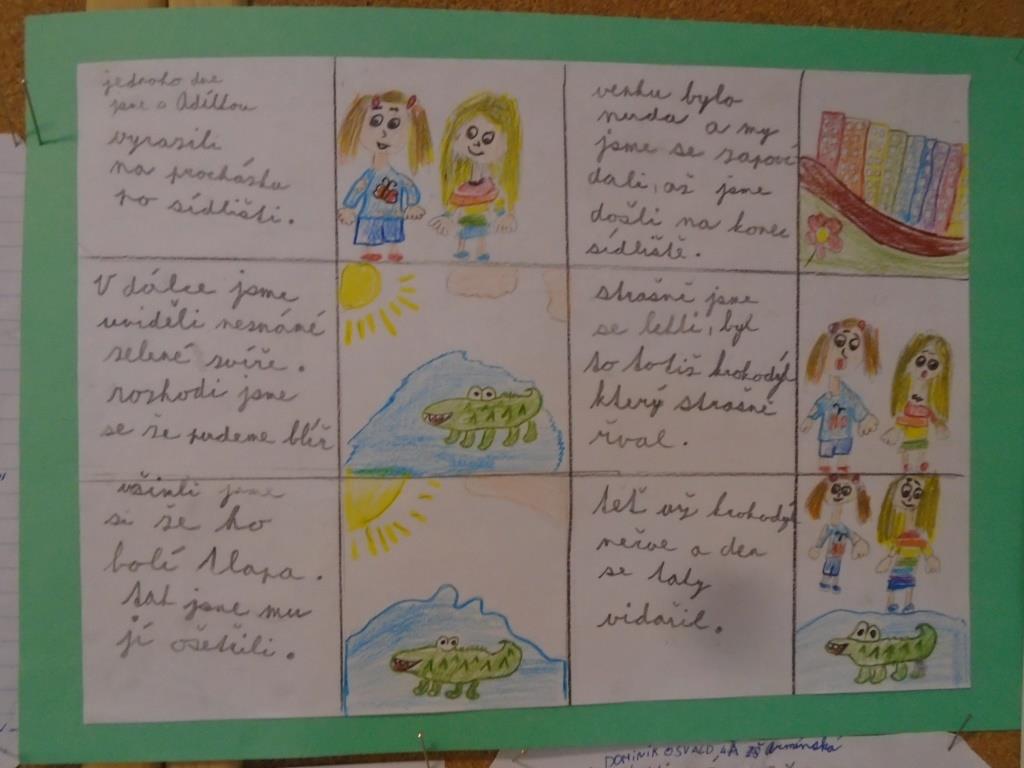 jednoho dne
jsme s Adélkou
vyrazili
na procházku
po sídlišti.
venku bylo
nuda a my
jsme se zapoví
dali, až jsme
došli na konec
sídliště.
V dálce jsme
uviděli neznámé
zelené zvíře.
rozhodi jsme
se že pudeme blíž
strašně jsme
se lekli, byl
to totiž krokodýl
který strašně
řval.
všimli jsme
si že ho
bolí tlapa.
tak jsme mu
jí ošetřili.
teť už krokodýl
neřve a den
se taky
vidařil.
DOMINIK OSVALD, 4.A ZŠ Arménská